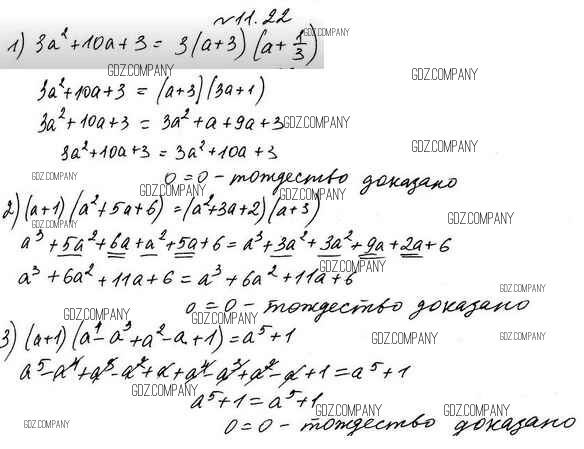 №11.22
1) 3a² + 10a + 3 = 3(a+3)(a + 1/3)
GDZ.COMPANY
GDZ.COMPANY GDZ.COMPANY
3a² + 10a + 3 = (a+3)(3a+1)
3a² + 10a + 3 = 3a² + a + 9a + 3 GDZ.COMPANY
3a² + 10a + 3 = 3a² + 10a + 3 GDZ.COMPANY
GDZ.COMPANY 0 = 0 - тождество доказано
GDZ.COMPANY GDZ.COMPANY
2) (a+1)(a² + 5a + 6) = (a² + 3a + 2)(a+3) GDZ.COMPANY
a³ + 5a² + 6a + a² + 5a + 6 = a³ + 3a² + 3a² + 9a + 2a + 6
a³ + 6a² + 11a + 6 = a³ + 6a² + 11a + 6
GDZ.COMPANY
0 = 0 - тождество доказано
GDZ.COMPANY GDZ.COMPANY GDZ.COMPANY
3) (a+1)(a⁴ - a³ + a² - a + 1) = a⁵ + 1
GDZ.COMPANY GDZ.COMPANY
a⁵ - a⁴ + a³ - a² + a + a⁴ - a³ + a² - a + 1 = a⁵ + 1
GDZ.COMPANY GDZ.COMPANY
a⁵ + 1 = a⁵ + 1
GDZ.COMPANY GDZ.COMPANY
GDZ.COMPANY 0 = 0 - тождество доказано